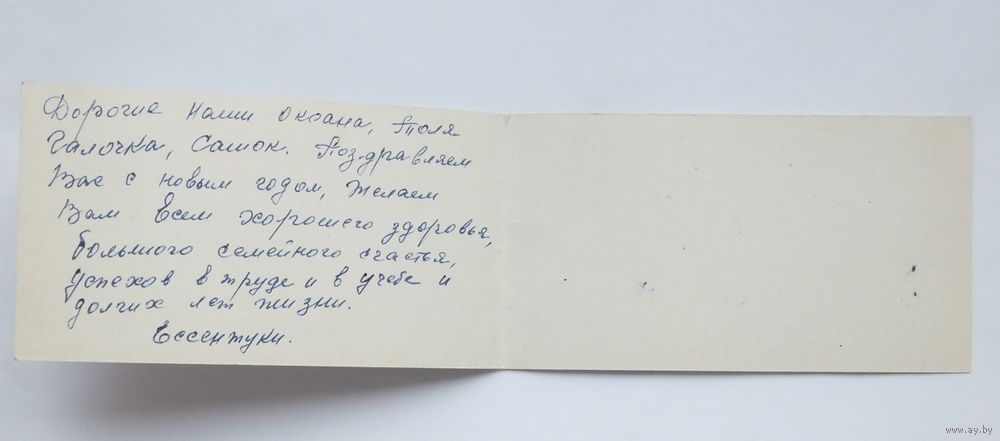 Дорогие наши Оксана, Толя
Галочка, Сашок. Поздравляем
Вас с новым годом, желаем
Вам всем хорошего здоровья,
большого семейного счастья,
успехов в труде и в учебе и
долгих лет жизни.
Ессентуки.
www.ay.by